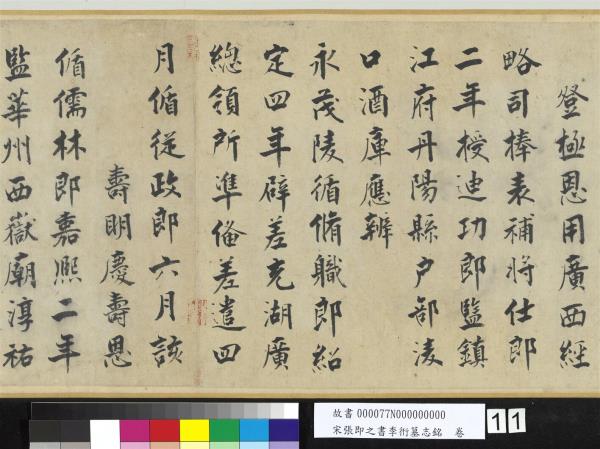 登極恩用廣西經
略司捧表補將仕郎
二年授迪功郎監鎮
江府丹陽縣戶部淩
口酒庫應辦
永茂陵循脩職郎紹
定四年辟差充湖廣
總領所準備差遣四
月循從政郎六月該
壽明慶壽恩
循儒林郎嘉熙二年
監華州西嶽廟淳祐
故書 000077N000000000
宋張即之書李衎墓志銘 卷
11